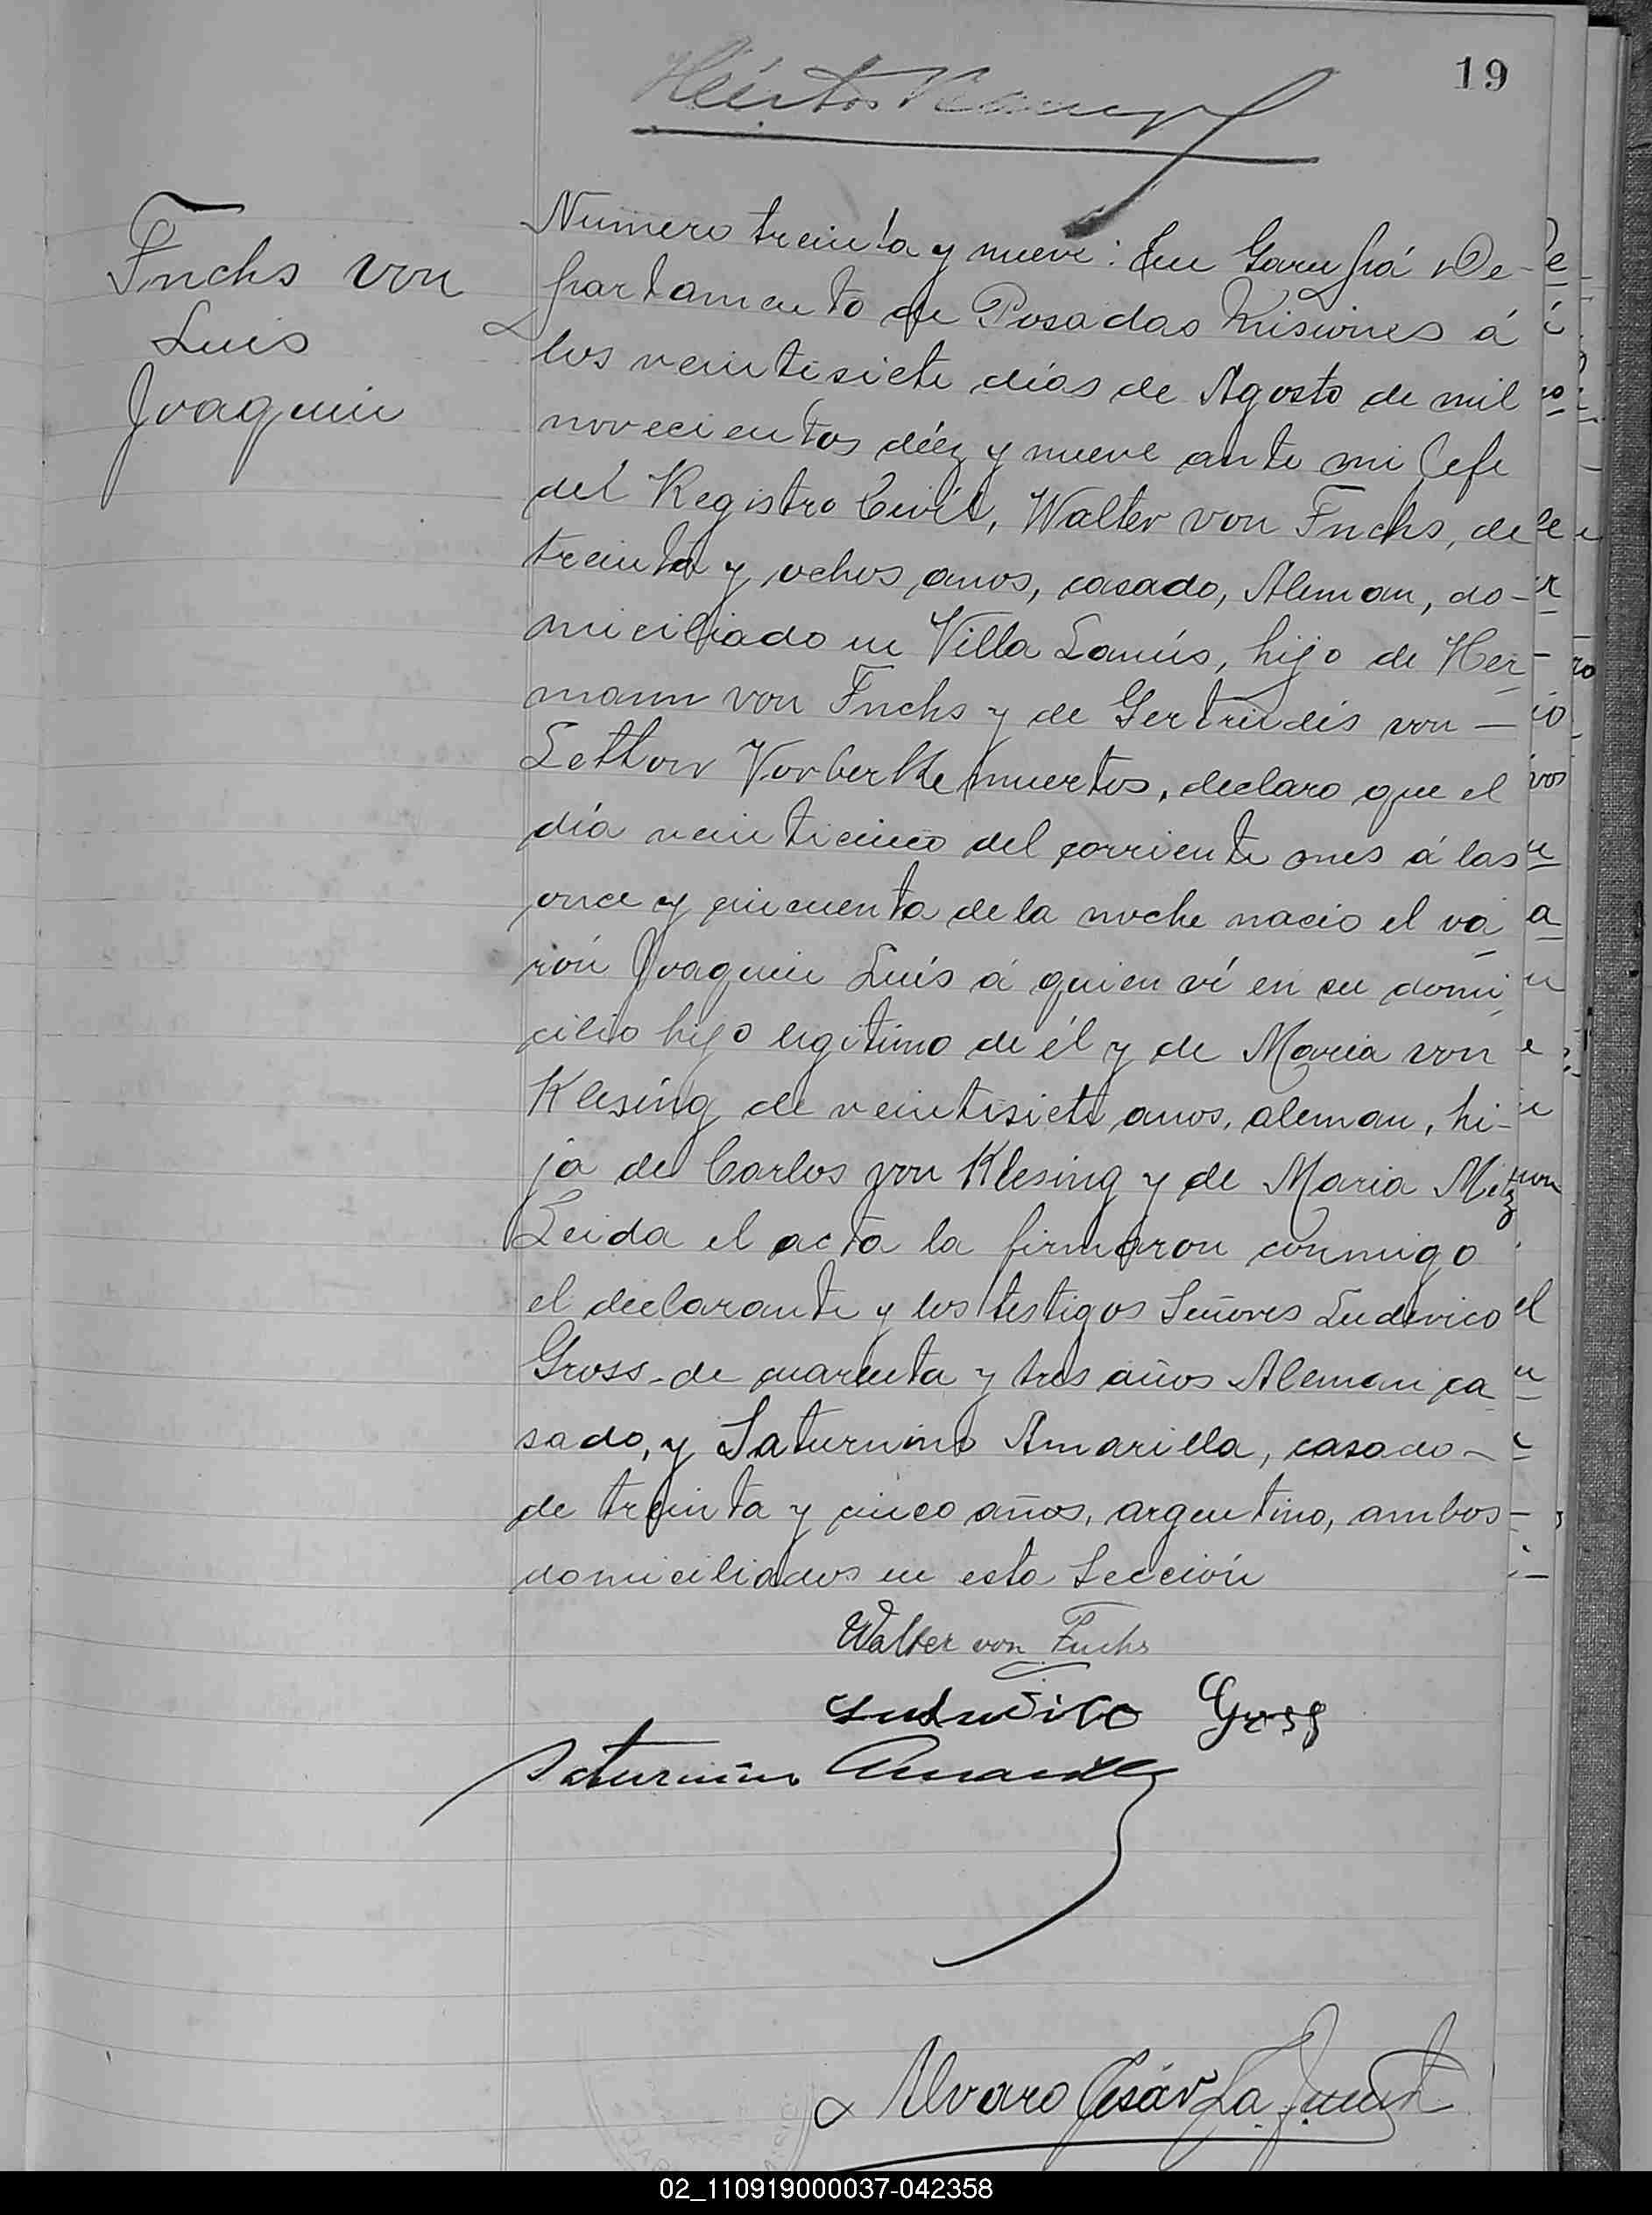 19
Fuchs von
Luis
Joaquin
Numero treinta y nueve: En Garupá De-
partamento de Posadas Misiones á
los veintisiete días de Agosto de mil
novecientos diéz y nueve ante mi Jefe
del Registro Civil, Walter von Fuchs, de
treinta y ochos anos, casado, Aleman, do-
miciliado en Villa Lanús, hijo de Her-
mann von Fuchs y de Gertrudis von —
muertos, declaro que el
día veinticinco del corriente mes á las
once y cincuenta de la noche nacio el va-
rón Joaquin Luís á quien ví en su domi-
cilio hijo legitimo de él y de Maria von
Klesing de veintisiete anos, aleman, hi-
ja de Carlos von Klesing y de Maria Metz
Leida el acta la firmaron conmigo
el declarante y los testigos Señores Ludovico
Gross de cuarenta y tres años Aleman ca-
sado, y Saturnino Amarilla, casado —
de treinta y cinco años, argentino, ambos
domiciliados en esta Sección
Walter von Fuchs
Ludwico Gross
Saturnino Amarilla
Alvaro César La
02_110919000037-042358